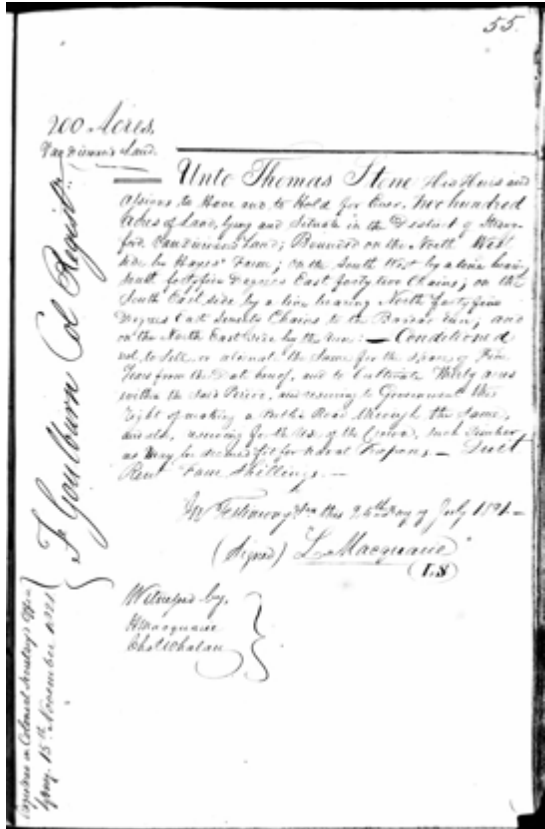 55.
200 Acres,
Van Diemen's Land.
Unto Thomas Stone His Heirs and
Assigns to Have and to Hold for Ever, Two hundred
Acres of Land, lying and Situate in the District of
Van Diemens Land; Bounded on the North West
side by Hayes' Farm; on the South West by a line bearing
South forty five Degrees East forty two Chains; on the
South East side by a line bearing North forty five
Degrees East Seventy Chains to the River; and
on the North East side by the River: — Conditioned
not to Sell or alienate the Same for the space of Five
Years from the Date hereof, and to Cultivate Thirty acres
within the said Period, and reserving to Government the
Right of making a Public Road through the Same,
and also, reserving for the Use of the Crown, such Timber
as May be deemed fit for Naval Purposes — Quit
Rent Four Shillings. —
In Testimony &ca this 25th Day of July 1821 —
(Signed) L. Macquarie
(L.S)
Witnessed by,
H Macquarie
Chas. Whalan
F. Goulburn Col Registr.
Registered in Colonial Secretary's Office
15th November 1821